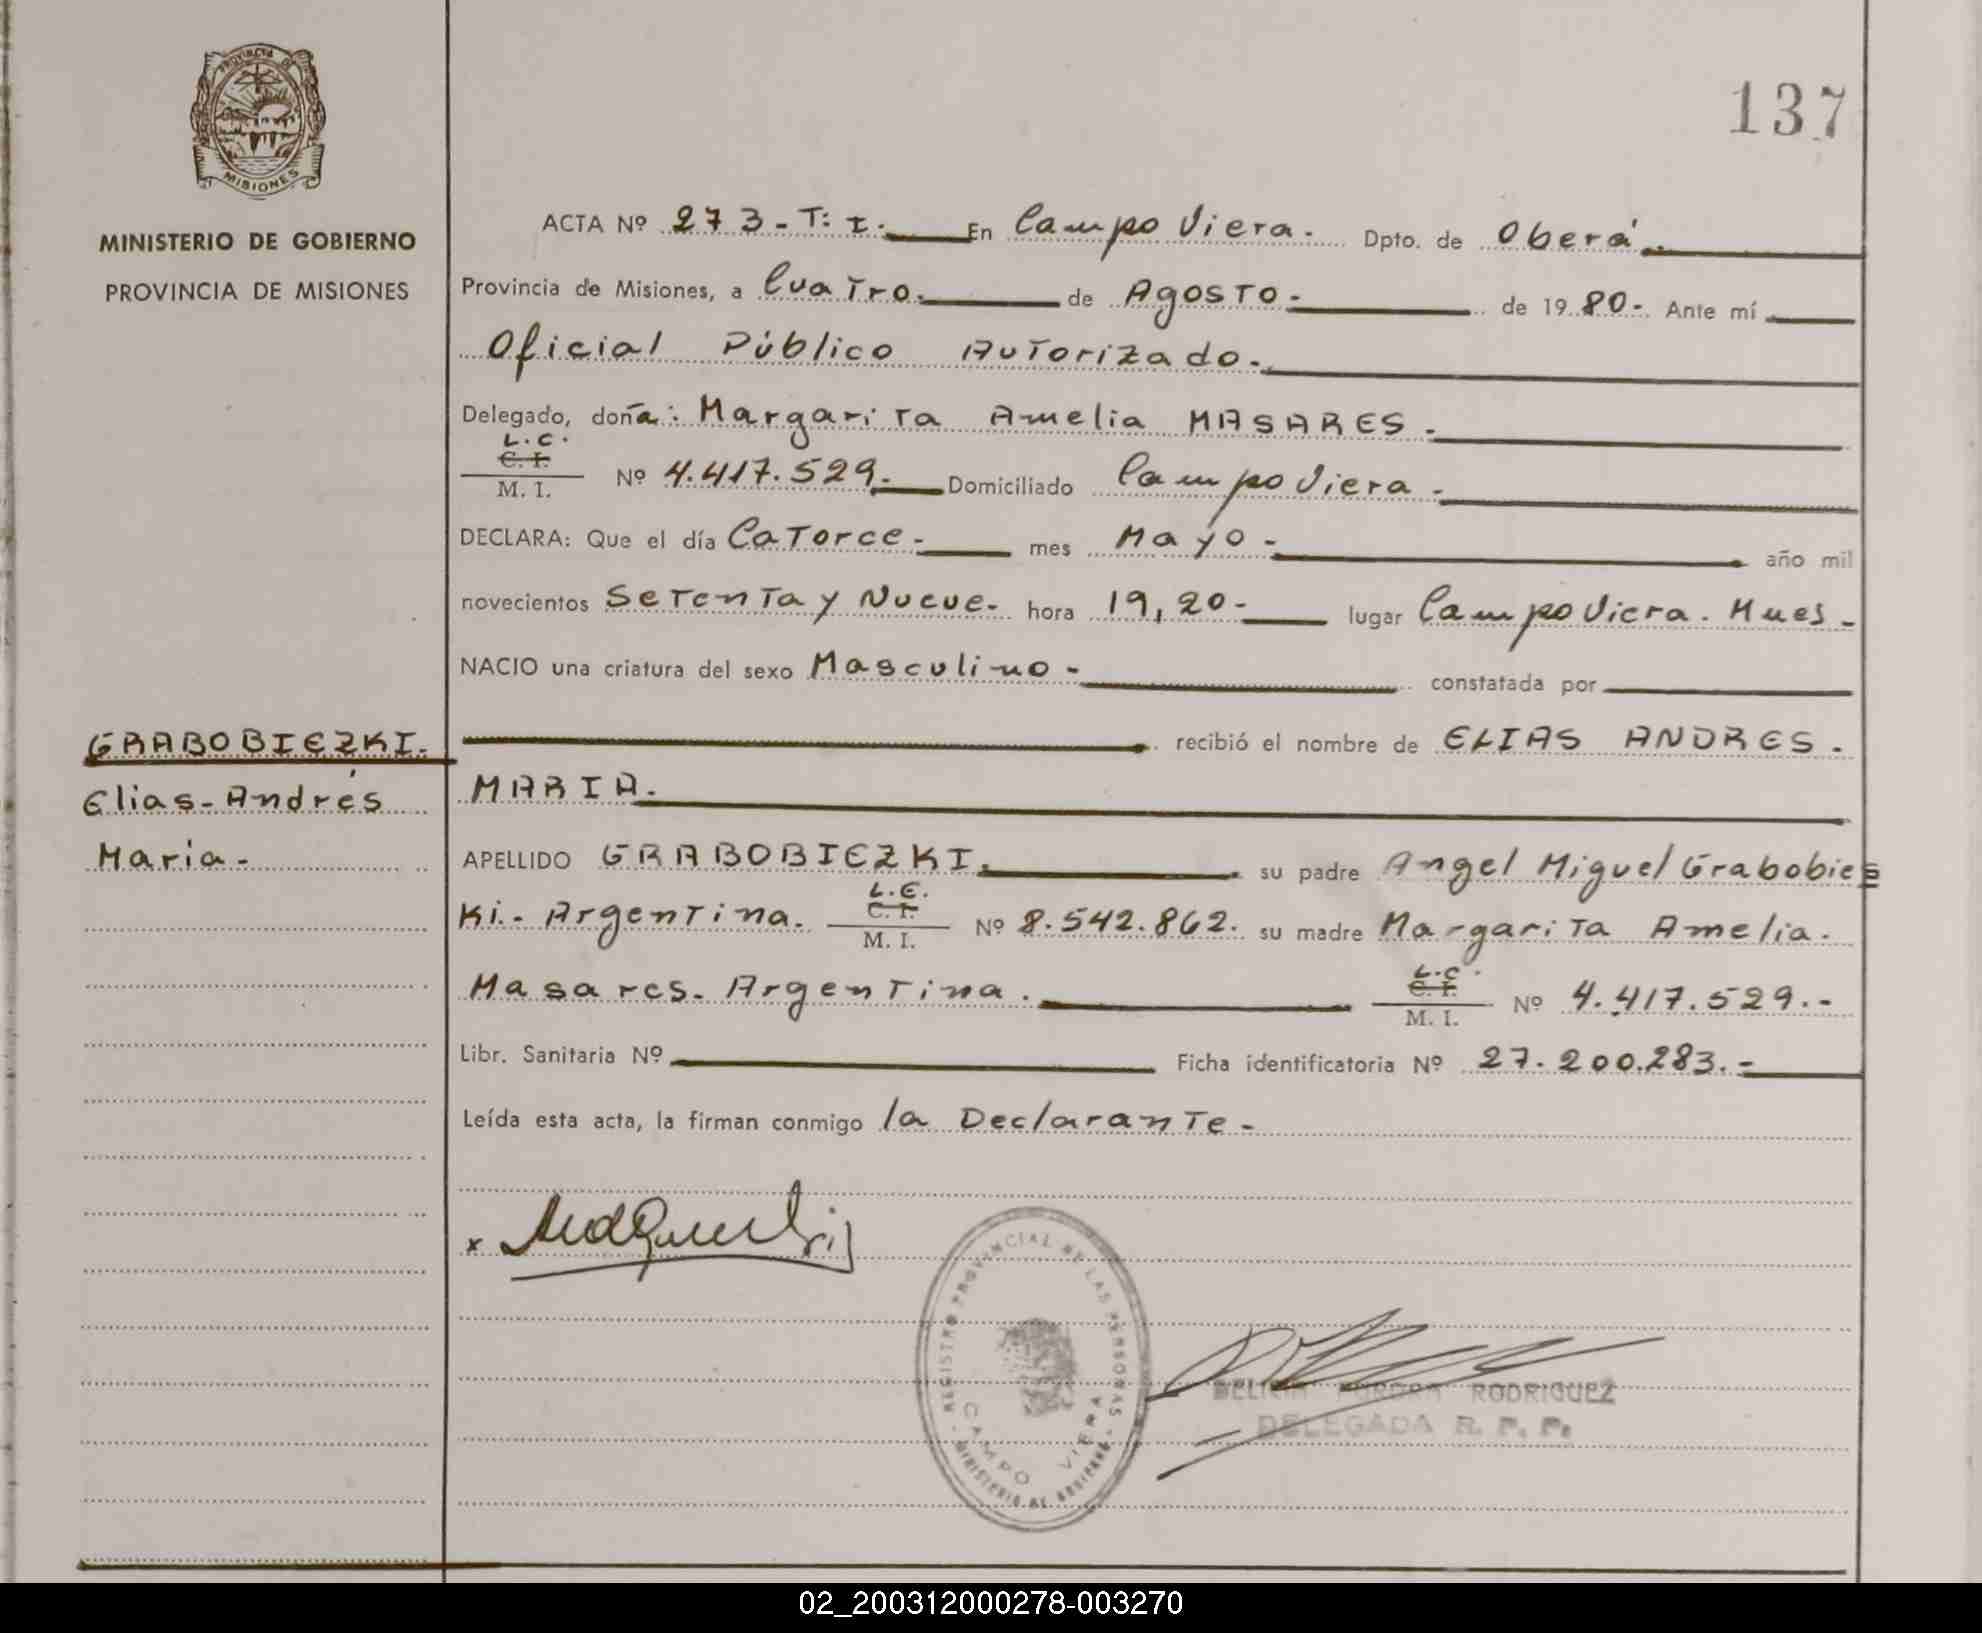 PROVINCIA DE
MISIONES
MINISTERIO DE GOBIERNO
PROVINCIA DE MISIONES
GRABOBIEZKI.
Elias-Andrés
Maria.-
137
ACTA Nº 273-T: I. En Campo Viera. Dpto. de Oberá.
Provincia de Misiones, a Cuatro. de Agosto.- de 1980.- Ante mí
Oficial Público Autorizado.-
Delegado, doña: Margarita Amelia MASARES.
L.C.
C. I.
M. I. Nº 4.417.529. Domiciliado Campo Viera.
DECLARA: Que el día Catorce.- mes Mayo.- año mil
novecientos Setenta y Nueve.- hora 19,20.- lugar Campo Viera. Mnes.-
NACIO una criatura del sexo Masculino.- constatada por
recibió el nombre de ELIAS ANDRES.
MARIA.
APELLIDO GRABOBIEZKI. su padre Angel Miguel Grabobies
ki.- Argentina. L.E. C. I. M. I. Nº 8.542.862. su madre Margarita Amelia.
Masares. Argentina. L.C. C. I. M. I. Nº 4.417.529.-
Libr. Sanitaria Nº Ficha identificatoria Nº 27.200.283.-
Leída esta acta, la firman conmigo la Declarante.-
x
REGISTRO PROVINCIAL DE LAS PERSONAS
CAMPO VIERA
MINISTERIO DE GOBIERNO
RODRIGUEZ
DELEGADA R. P. P.
02_200312000278-003270